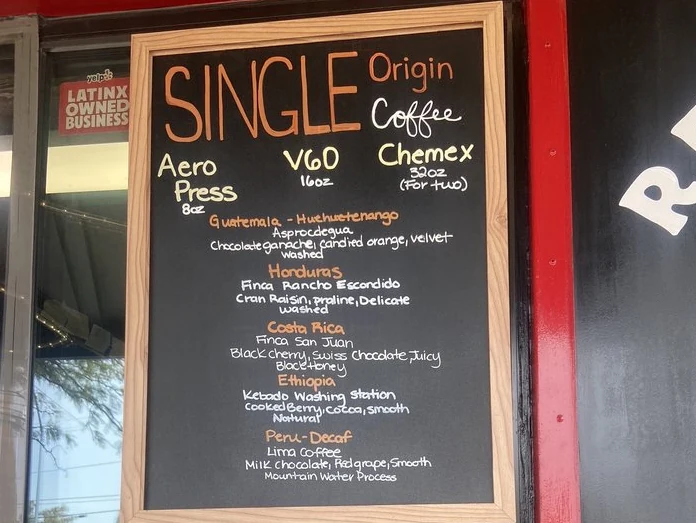 yelp
LATINX
OWNED
BUSINESS
SINGLE Origin
Coffee
Aero
Press
8oz
V60
16oz
Chemex
32oz
(For two)
Guatemala - Huehuetenango
Asprocdegua
Chocolate ganache, candied orange, velvet
washed
Honduras
Finca Rancho Escondido
Cran Raisin, praline, Delicate
washed
Costa Rica
Finca San Juan
Black cherry, Swiss Chocolate, Juicy
Black Honey
Ethiopia
Kebado Washing Station
Cooked Berry, cocoa, smooth
Natural
Peru-Decaf
Lima Coffee
Milk chocolate, Red grape, Smooth
Mountain Water Process